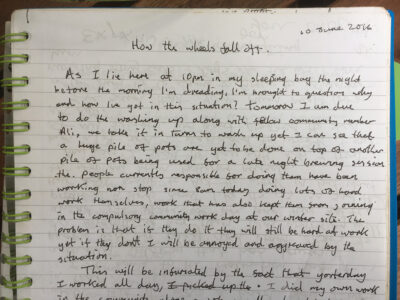 10 June 2016
How the wheels fall off.
As I lie here at 10pm in my sleeping bag the night
before the morning I'm dreading, I'm brought to question why
and how I've got in this situation? Tomorrow I am due
to do the washing up along with fellow community member
Ali, we take it in turns to wash up yet I can see that
a huge pile of pots are yet to be done on top of another
pile of pots being used for a late night brewing session
the people currently responsible for doing them have been
working non stop since 8am today doing lots of hard
work themselves, work that was also kept them from joining
in the compulsory community work day at our winter site. The
problem is that if they do it they will still be hard at work
yet if they don't I will be annoyed and aggreaved by the
situation.
This will be infuriated by the fact that yesterday
I worked all day, I picked up the . I did my own work
in the community